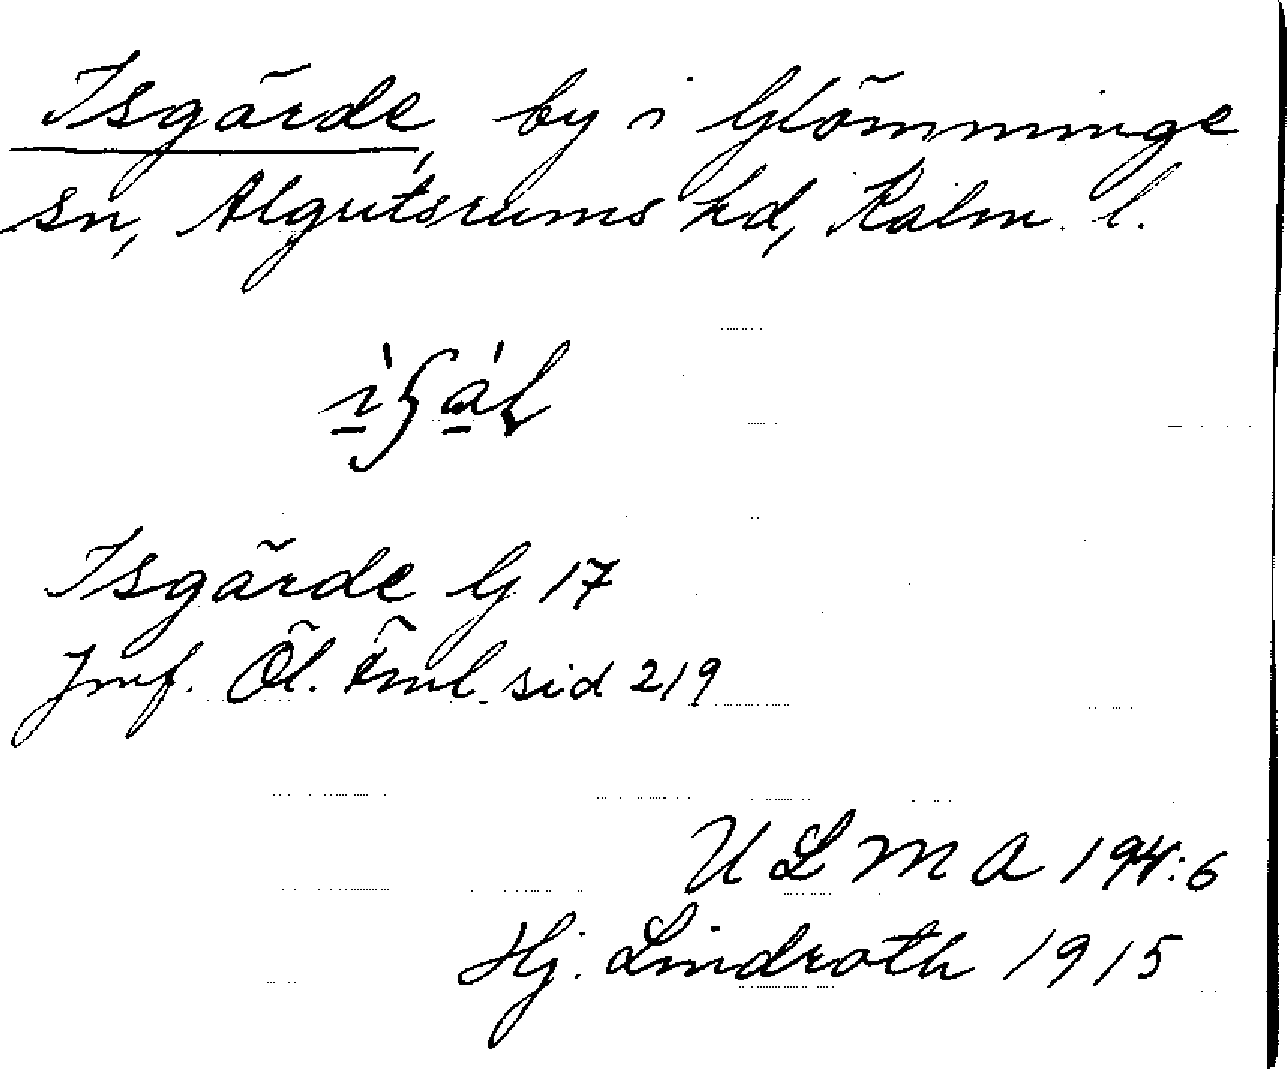 Isgärde, by i Glömminge
sn, Algutsrums hd, Kalm. l.
Isgärde G 17
Jmf. Öl. fml. sid 219
ULMA 194:6
Hj. Lindroth 1915